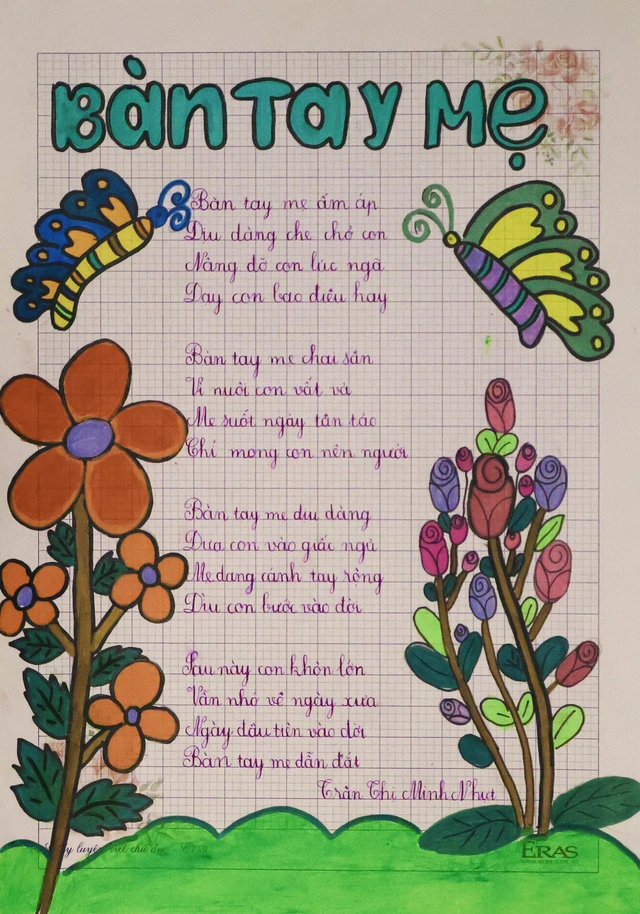 Bàn Tay Mẹ
Bàn tay mẹ ấm áp
Dịu dàng che chở con
Nâng đỡ con lúc ngã
Dạy con bao điều hay
Bàn tay mẹ chai sần
Vì nuôi con vất vả
Mẹ suốt ngày tần tảo
Chỉ mong con nên người
Bàn tay mẹ dịu dàng
Đưa con vào giấc ngủ
Mẹ dang cánh tay rộng
Dìu con bước vào đời
Sau này con khôn lớn
Vẫn nhớ về ngày xưa
Ngày đầu tiên vào đời
Bàn tay mẹ dẫn dắt
Trần Thị Minh Nhựt
luyện viết chữ đẹp
ERAS